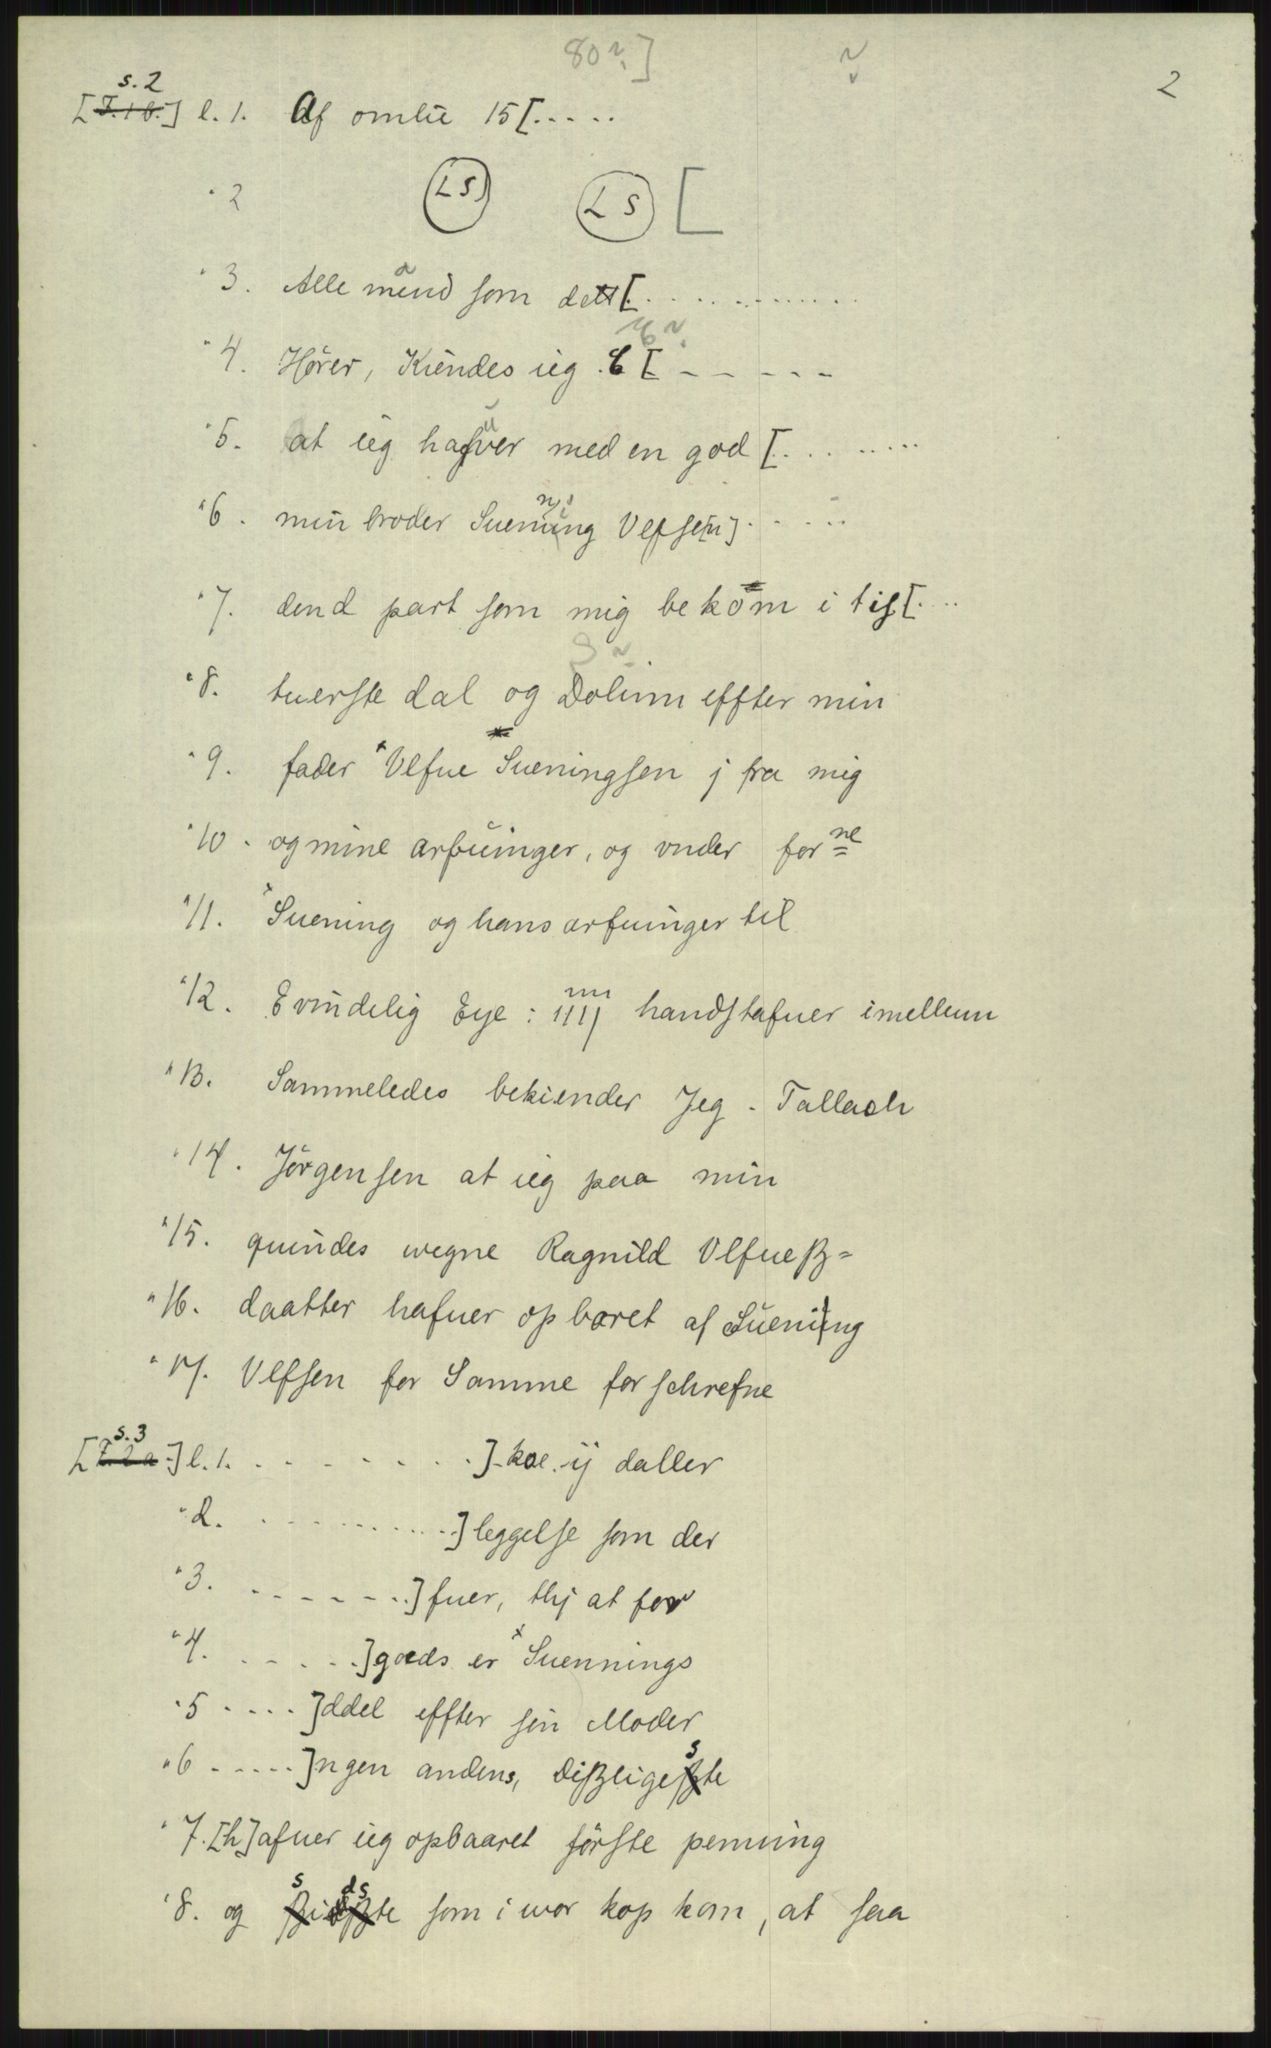 80 ?]
2
s. 2
[F. 1 b.] l. 1. Af omlië 15 [.....
" 2 (LS) (LS) [
" 3. Alle mend som dett [............
" 4. Hører, Kiendes ieg E [-----
" 5. at ieg hafver med en god [........
" 6. min broder Suenning Vlfse[n].....
" 7. dend part som mig bekom i tif [....
" 8. tuerste dal og Dolinn effter min
" 9. fader Vlfue Sueningsen j fra mig
" 10. og mine arfuinger, og vnder for ne
" 11. Suening og hans arfuinger til
" 12. Evindelig Eye : IIIj handstafuer imellum
" 13. Sammeledes bekiender Jeg - Tallach
" 14. Jørgensen at ieg paa min
" 15. quindes wegne Ragnild Vlfueß=
" 16. daatter hafuer opbaret af Suening
" 17. Vlfsen for Samme forschrefne
s. 3
[F. 2 a.] l. 1. ........] koe ij daller
" 2. ..........] leggelse som der
" 3. .......] fuer, thj at for
" 4. .....] goeds er Suennings
" 5 ....] ddel effter sin Moder
" 6 .....] ngen andens, dißligeste
" 7. [h]afuer ieg opbaaret første penning
" 8. og sidste som i wor kop kom, at saa